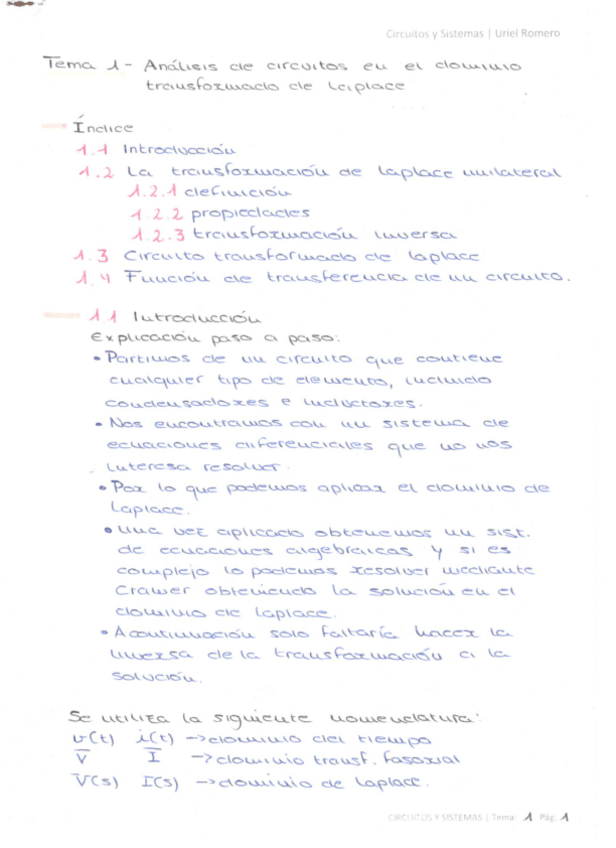 Circuitos y Sistemas | Uriel Romero
Tema 1 - Análisis de circuitos en el dominio
transformado de Laplace
Índice
1.1 Introducción
1.2 La transformación de Laplace unilateral
1.2.1 definición
1.2.2 propiedades
1.2.3 transformación inversa
1.3 Circuito transformado de laplace
1.4 Función de transferencia de un circuito.
1.1 Introducción
Explicación paso a paso:
• Partimos de un circuito que contiene
cualquier tipo de elemento, incluido
condensadores e inductores.
• Nos encontramos con un sistema de
ecuaciones diferenciales que no nos
interesa resolver.
• Por lo que podemos aplicar el dominio de
Laplace.
• Una vez aplicado obtenemos un sist.
de ecuaciones algebraicas y si es
complejo lo podemos resolver mediante
Cramer obteniendo la solución en el
dominio de Laplace.
• A continuación solo faltaría hacer la
inversa de la transformación a la
solución.
Se utiliza la siguiente nomenclatura:
v(t) i(t) → dominio del tiempo
V̅ I̅ → dominio transf. fasorial
V(s) I(s) → dominio de Laplace.
CIRCUITOS Y SISTEMAS | Tema: 1 Pág. 1